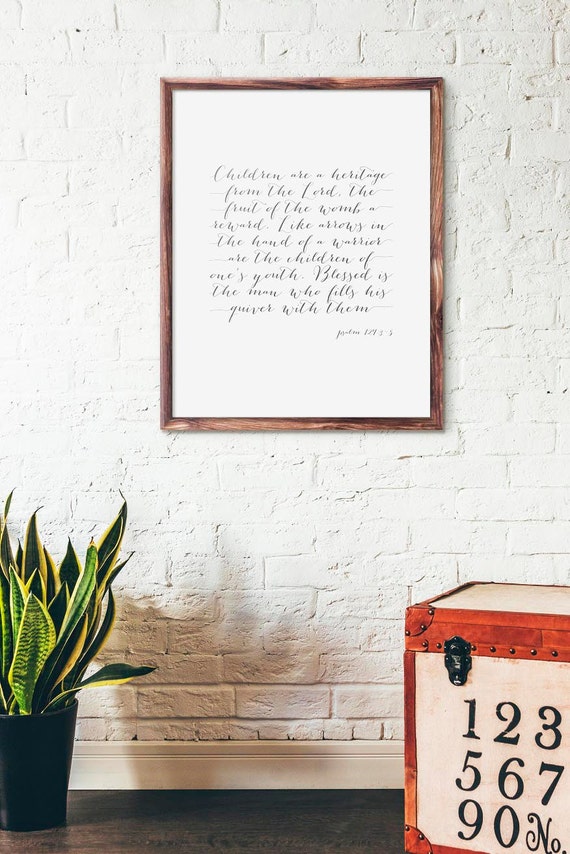 Children are a heritage
from the Lord, the
fruit of the womb a
reward. Like arrows in
the hand of a warrior
are the children of
one's youth. Blessed is
the man who fills his
quiver with them
psalm 127:3-5
123
567
90 No.